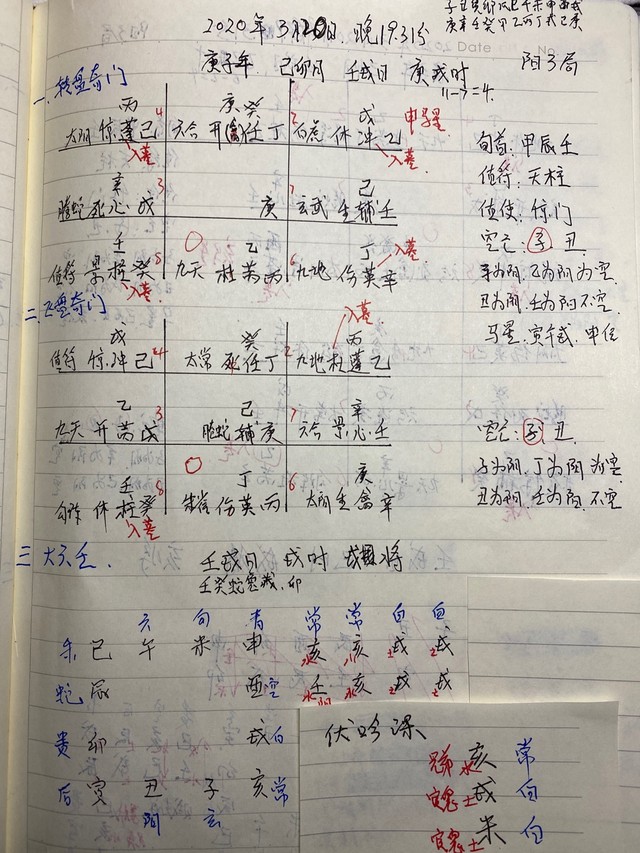 2020年3月20日.晚19:31分
庚子年 己卯月 壬戌日 庚戌时
11-7=4.
阳3局
一、转盘奇门
丙 庚癸 戊
太阴 惊蓬己 4 六合 开禽任丁 2 白虎 休冲乙 申马星
入墓 入墓
辛 己
螣蛇死心戊 3 庚 7 玄武 生辅壬
壬 乙 丁 入墓
值符 景柱癸 8 九天 杜芮丙 6 九地 伤英辛
入墓
旬首:甲辰壬
值符:天柱
值使:惊门
空亡:子 丑
丑为阴.壬为阳不空
马星:寅午戌.申位
二.飞盘奇门
入墓
戊 癸 丙
值符 惊冲己 4 太常 死任丁 2 九地杜蓬乙
乙 己 辛
九天 开芮戊 3 螣蛇 辅庚 7 六合 景心壬
壬 丁 庚
勾陈 休柱癸 8 朱雀 伤英丙 6 太阴 生禽辛
入墓
空亡:子 丑
子为阳.丁为阴 为空
丑为阴.壬为阳.不空
三 大六壬.
壬戌日 戌时 戌将
六 勾 青 常 常 白 白
朱 巳 午 未 申 亥 亥 戌 戌
蛇 辰 酉空 壬 亥 戌 戌
贵 卯 戌白
后 寅 丑 子 亥常
阴 玄
伏吟课
兄弟水 亥 常
官鬼土 戌 白
官鬼土 未 白